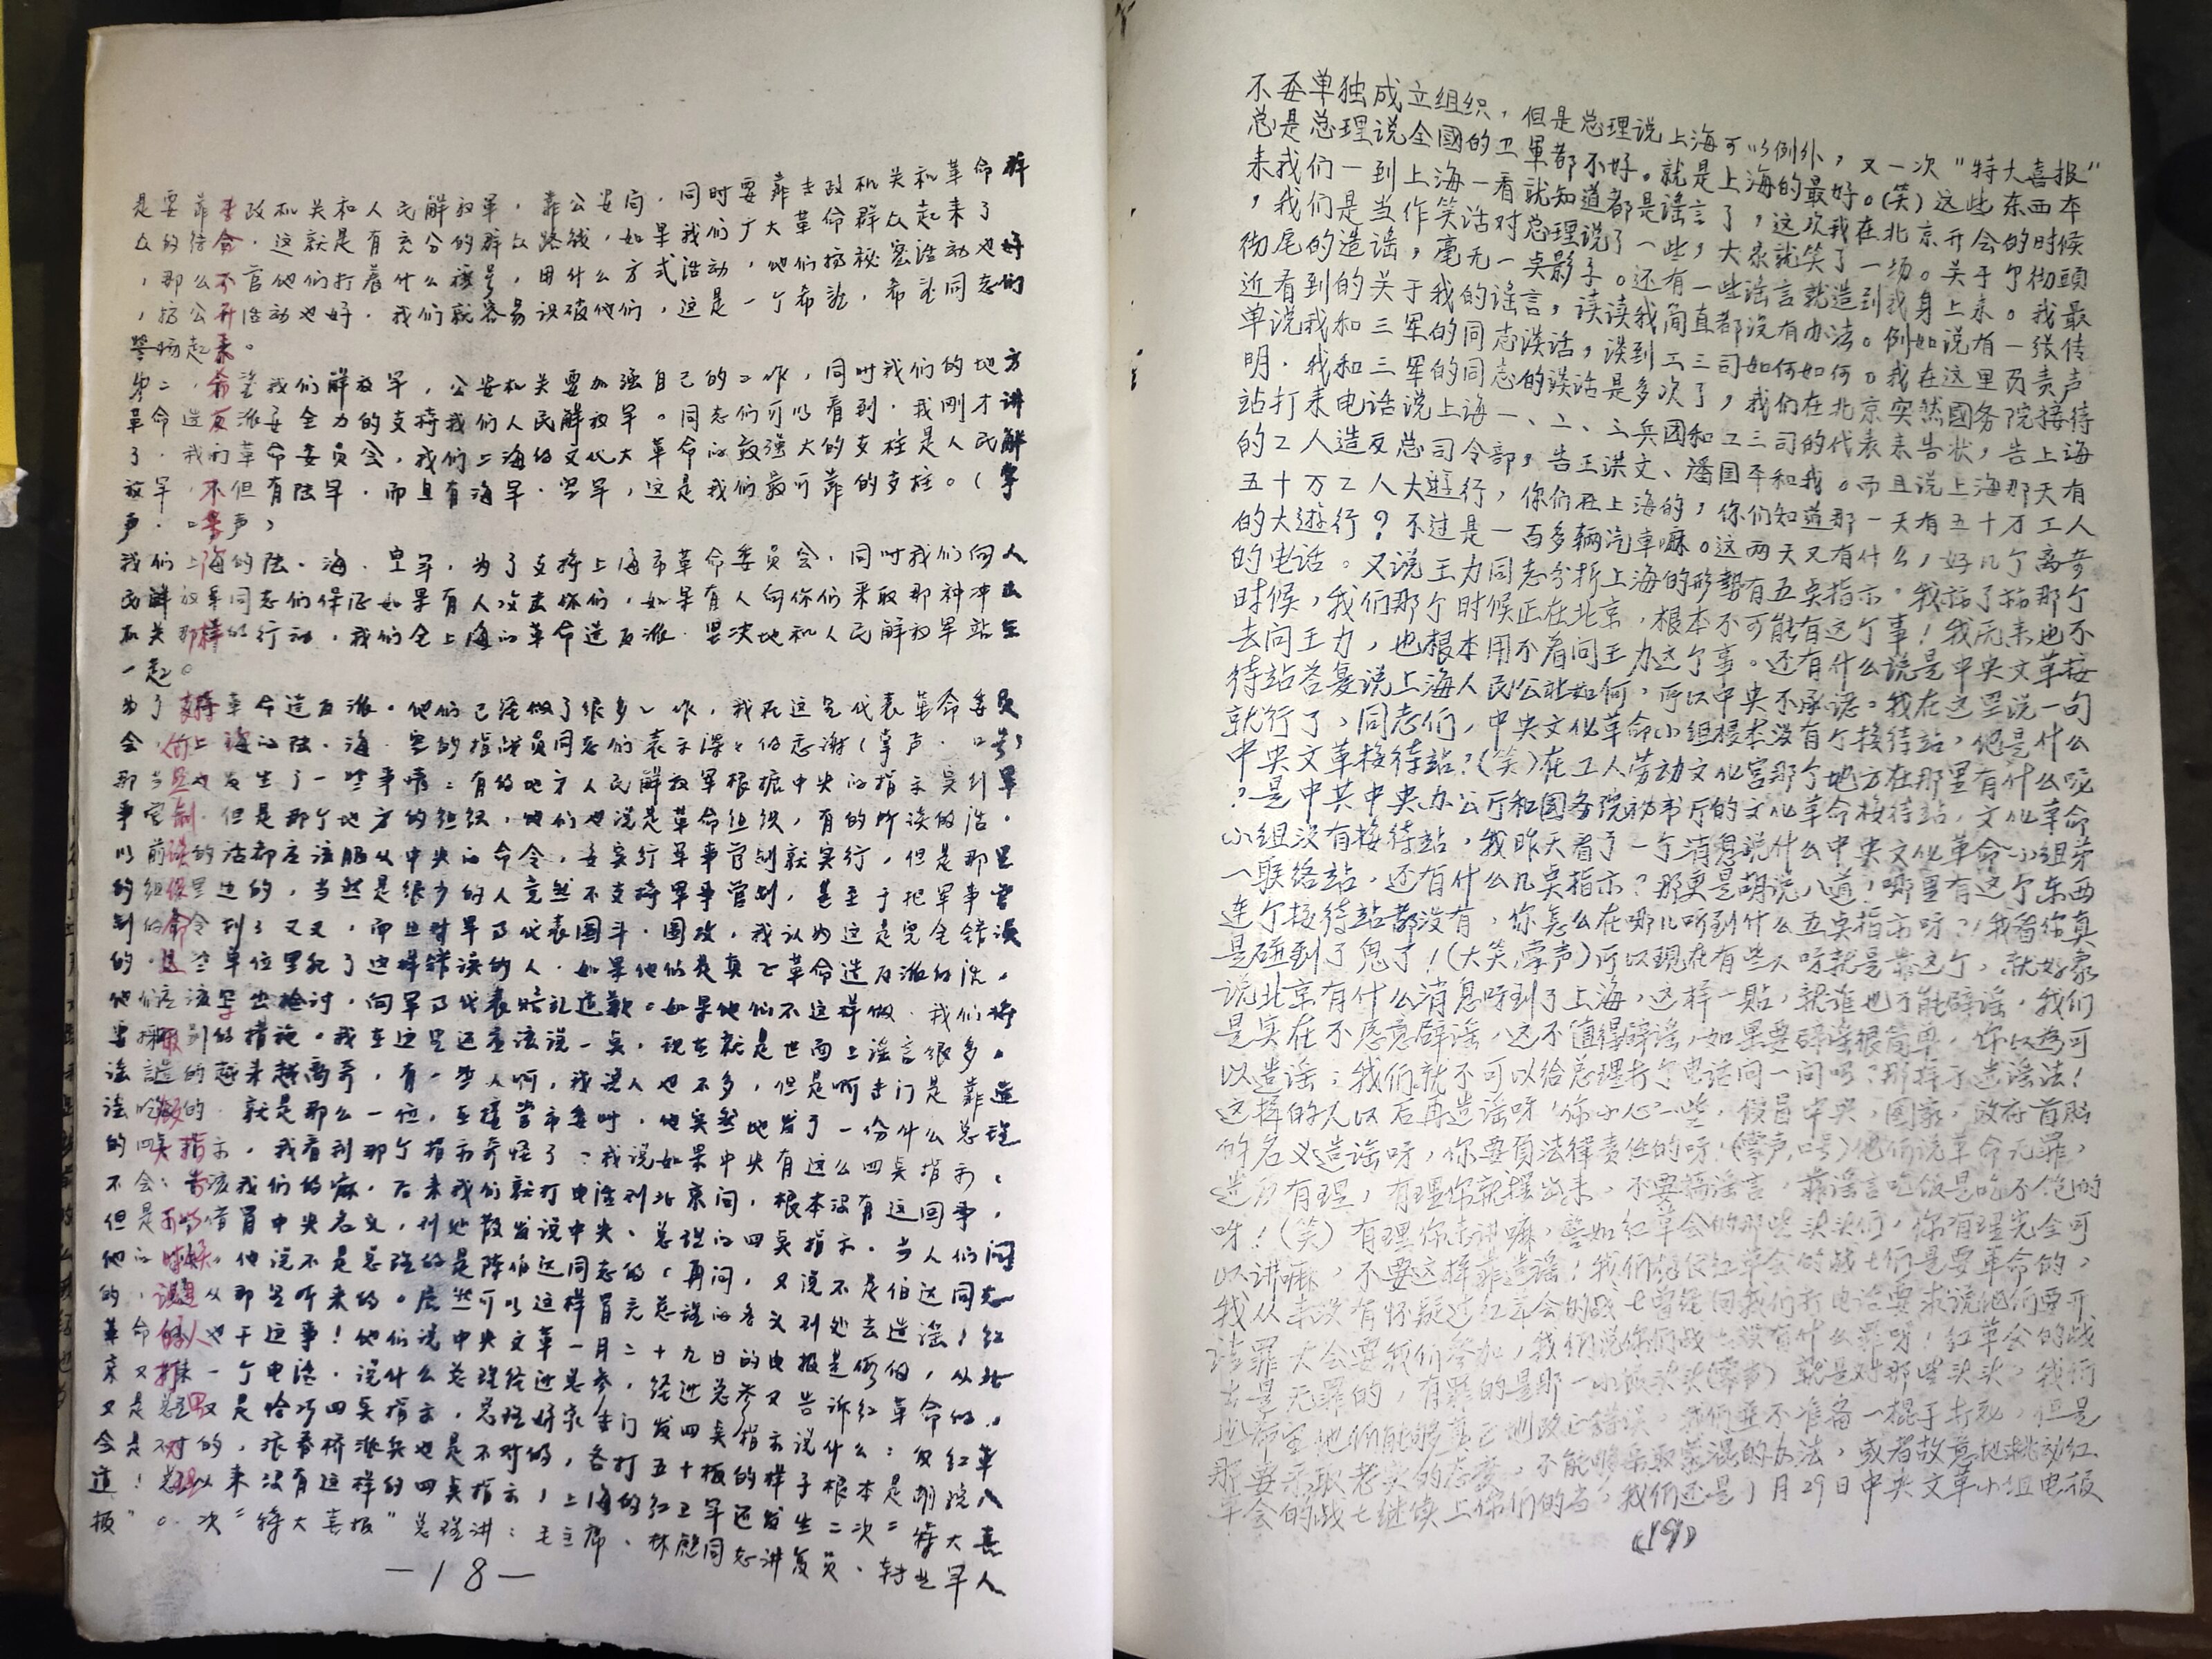 是要靠专政机关和人民解放军,靠公安局,同时要靠专政机关和革命群
众的结合,这就是有充分的群众路线,如果我们广大革命群众起来了
,那么不管他们打着什么旗号,用什么方式活动,他们搞秘密活动也好
,搞公开活动也好,我们就容易识破他们,这是一个希望,希望同志们
警惕起来。
第二,希望我们解放军,公安机关要加强自己的工作,同时我们的地方
革命造反派要全力的支持我们人民解放军。同志们可以看到,我刚才讲
了,我们革命委员会,我们上海的文化大革命的最强大的支柱是人民解
放军,不但有陆军,而且有海军,空军,这是我们最可靠的支柱。(掌
声,口号声)
我们上海的陆、海、空军,为了支持上海市革命委员会,同时我们向人
民解放军同志们保证如果有人攻击你们,如果有人向你们采取那种冲击
机关那样的行动,我们全上海的革命造反派,坚决地和人民解放军站在
一起。
为了支持革命造反派,他们已经做了很多工作,我在这里代表革命委员
会,向上海的陆、海、空的指战员同志们表示深深的感谢(掌声,口号)
那当然也发生了一些事情:有的地方人民解放军根据中央的指示实行军
事管制,但是那个地方的组织,他们也说是革命组织,有的所谈的话,
以前谈的话都应该服从中央的命令,要实行军事管制就实行,但是那里
的组织里边的,当然是很少的人竟然不支持军事管制,甚至于把军事管
制的命令到了又又,而且对军事代表围斗,围攻,我认为这是完全错误
的,这些单位里犯了这样错误的人,如果他们是真正革命造反派的话,
他们应该写出检讨,向军事代表赔礼道歉。如果他们不这样做,我们将
要采取别的措施。我在这里还应该说一点,现在就是世面上谣言很多,
谣言造的越来越离奇,有一些人啊,我说人也不多,但是啊专门是靠造
谣吃饭的,就是那么一位,在搞当市委时,他突然地发了一份什么总理
的四点指示,我看到那个指示奇怪了:我说如果中央有这么四点指示,
不会不告诉我们的嘛,后来我们就打电话到北京问,根本没有这回事,
但是可以借冒中央名义,到处散发说中央、总理的四点指示,当人们问
他的时候,他说不是总理的是陈伯达同志的(再问,又说不是伯达同志
的,谁是从那里听来的。居然可以这样冒充总理的名义到处去造谣,红
革命的人也干这事!他们说中央文革一月二十九日的电报是假的,从北
京又推来一个电话,说什么总理经过总参,经过总参又告诉红革命的,
又是总理又是恰巧四点指示,总理好象专门发四点指示说什么:反红革
会是不对的,张春桥派兵也是不对的,各打五十板的样子根本是胡说八
道!总理从来没有这样的四点指示,上海的红卫军还发生二次“特大喜
报”。一次“特大喜报”总理讲:毛主席、林彪同志讲复员、转业军人
—18—
不要单独成立组织,但是总理说上海可以例外,又一次“特大喜报”
总是总理说全國的卫軍都不好。就是上海的最好。(笑)这些东西本
来我们一到上海一看就知道都是谣言了,这次我在北京开会的时候
,我们是当作笑话对总理说了一些,大家就笑了一场。关于个彻頭
彻尾的造谣,毫无一点影子。还有一些谣言就造到我身上来。我最
近看到的关于我的谣言,读读我简直都没有办法。例如说有一张传
单说我和三军的同志谈话,谈到工三司如何如何。我在这里负责声
明,我和三军的同志的谈话是多次了,我们在北京突然國务院接待
站打来电话说上海一、二、三兵团和工三司的代表来告状,告上海
的工人造反总司令部,告王洪文、潘国平和我。而且说上海那天有
五十万工人大遊行,你们在上海的,你们知道那一天有五十万工人
的大遊行?不过是一百多辆汽車嘛。这两天又有什么,好几个离奇
的电话。又说王力同志分析上海的形勢有五点指示,我話了話那个
时候,我们那个时候正在北京,根本不可能有这个事!我原来也不
去问王力,也根本用不着问王力这个事。还有什么说是中央文革接
待站答复说上海人民公社如何,所以中央不承認。我在这里说一句
就行了,同志们,中央文化革命小组根本没有个接待站,他是什么
中央文革接待站?(笑)在工人劳动文化宫那个地方在那里有什么呢
?是中共中央办公厅和国务院秘书厅的文化革命接待站,文化革命
小组没有接待站,我昨天看了一个消息说什么中央文化革命小组第
一联络站,还有什么几点指示?那更是胡说八道,哪里有这个东西
连个接待站都没有,你怎么在哪儿听到什么五点指示呀?!我看你真
是碰到了鬼了!(大笑,掌声)所以现在有些人呀就是靠这个,就好象
说北京有什么消息呀到了上海,这样一貼,就谁也不能辟谣,我们
是实在不愿意辟谣,这不值得辟谣,如果要辟谣很简单,你以為可
以造谣;我们就不可以给总理打个电话问一问吗?那样子造谣法!
这样的人以后再造谣呀,你小心一些,假冒中央,國家,政府首脑
的名义造谣呀,你要負法律責任的呀!(掌声,口号)他们说革命无罪,
造反有理,有理你就摆出来,不要搞谣言,靠谣言吃饭是吃不飽的
呀!(笑)有理你去讲嘛,譬如红革会的那些头头们,你有理完全可
以讲嘛,不要这样靠造谣!我们相信红革会的战士们是要革命的,
我从来没有怀疑过红革会的战士曾经向我们打电话要求说他们要开
請罪大会要我们参加,我们说你们战士没有什么罪呀!红革会的战
士是无罪的,有罪的是那一小撮头头(掌声)就是对那些头头,我们
也希望他们能够真正地改正错误,我们并不准备一棍子打死,但是
那要采取老实的态度,不能够采取蒙混的办法,或者故意地挑动红
革会的战士继续上你们的当,我们还是1月29日中央文革小组电报
(19)